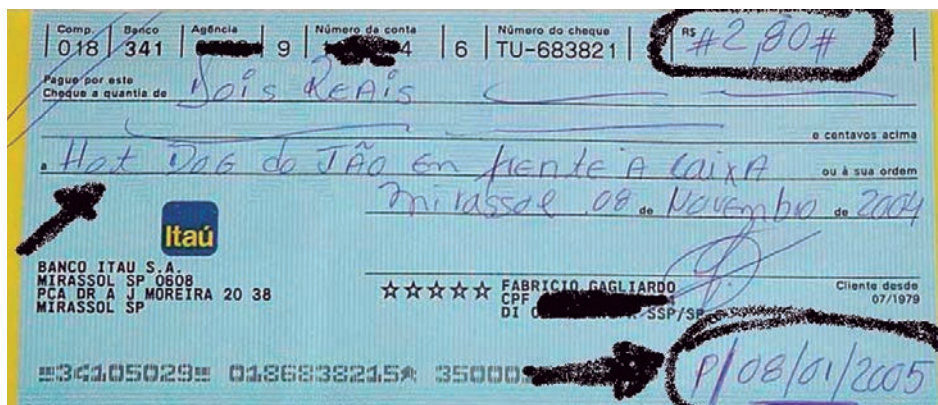 Comp. Banco Agência Número da conta Número do cheque R$
018 341 9 4 6 TU-683821 #2,80#
Pague por este
Cheque a quantia de Dois Reais
e centavos acima
a Hot Dog do Jão em frente A Caixa ou à sua ordem
Mirassol 08 de Novembro de 2004
Itaú
BANCO ITAU S.A.
MIRASSOL SP 0608
PCA DR A J MOREIRA 20 38
MIRASSOL SP
☆☆☆☆☆ FABRICIO GAGLIARDO
CPF 4
DI SSP/SP
Cliente desde
07/1979
P/08/01/2005
34105029 0186838215 3500